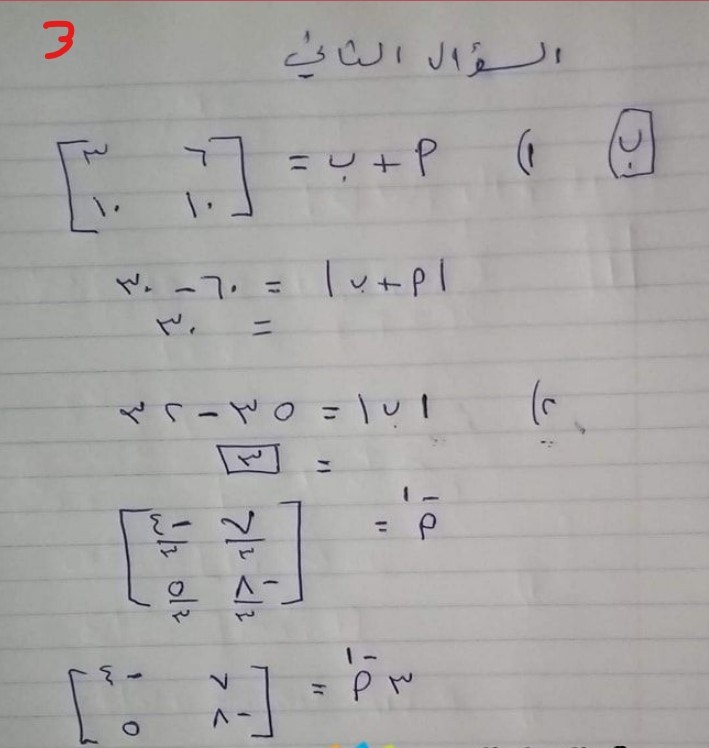 3
السؤال الثاني
ب ١) أ + ب = [٦ ٣
١٠ ١٠]
|أ + ب| = ٦٠ - ٣٠
= ٣٠
٢) |ب| = ٣٥ - ٣٢
= ٣
أ⁻¹ = [٧/٣ -٤/٣
-٨/٣ ٥/٣]
٣ أ⁻¹ = [٧ -٤
-٨ ٥]